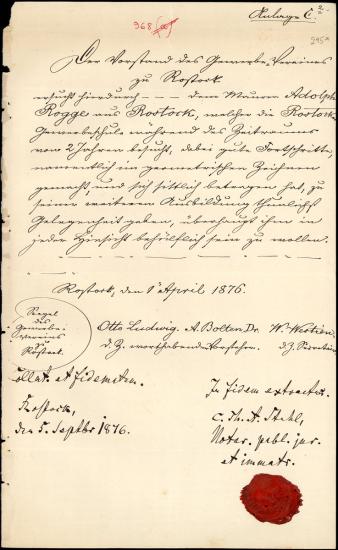 Anlage C. 2
968
295
Der Vorstand des Gewerbe-Vereines
zu Rostock
ersucht hierdurch — dem Maurer Adolph
Rogge aus Rostock, welcher die Rostock.
Gewerbeschule während des Zeitraums
von 2 Jahren besucht, dabei gute Fortschritte,
namentlich im geometrischen Zeichnen
gemacht, und sich sittlich betragen hat, zu
seiner weiteren Ausbildung thunlichst
Gelegenheit geben, überhaupt ihm in
jeder Hinsicht behülflich sein zu wollen.
Rostock, den 1 April 1876.
Siegel
des
Gewerbe-
vereins
zu
Rostock.
Otto Ludwig. A. Bolten Dr. W.
d. Z. worthabender Vorsteher. d. Z. Secretär
Collat. et fidem
Rostock,
den 5. Septbr 1876.
In fidem
C. Th. A. Stahl,
Notar. publ. jur.
et immatr.